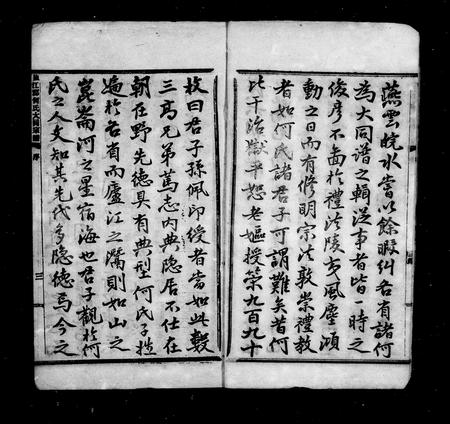 燕雲皖水嘗以餘暇糾各省諸何
為大同譜之輯從事者皆一時之
俊彥不啚於禮法陵夷風塵澒
動之日而有修明宗法敦崇禮教
者如何氏諸君子可謂難矣昔何
比干治獄平恕老嫗授策九百九十
枚曰君子孫佩印綬者當如此數
三高兄弟篤志内典隐居不仕在
朝在野先德具有典型何氏子姓
遍於各省而廬江之派則如山之
崑崙河之星宿海也君子觀於何
氏之人文知其先代多隐德焉今之
廬江郡何氏大同宗譜 序 三